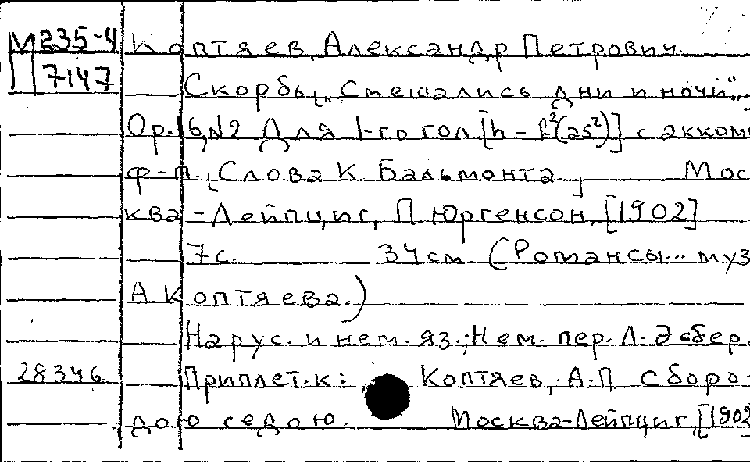 М 235-4 Коптяев, Александр Петрович.
7147 Скорбь. „Смешались дни и ночи"...
Op.16, №2 Для 1-го гол. [h - f²(as²)] с акком
ф-п. [Слова К. Бальмонта.] Мос
ква-Лейпциг, П. Юргенсон, [1902]
7 с. 34 см (Романсы... муз
А Коптяева.)
На рус. и нем. яз.; Нем. пер. Л. Эсбер.
28346 Приплет. к: Коптяев, А.П. С боро-
дою седою. Москва-Лейпциг, [1902